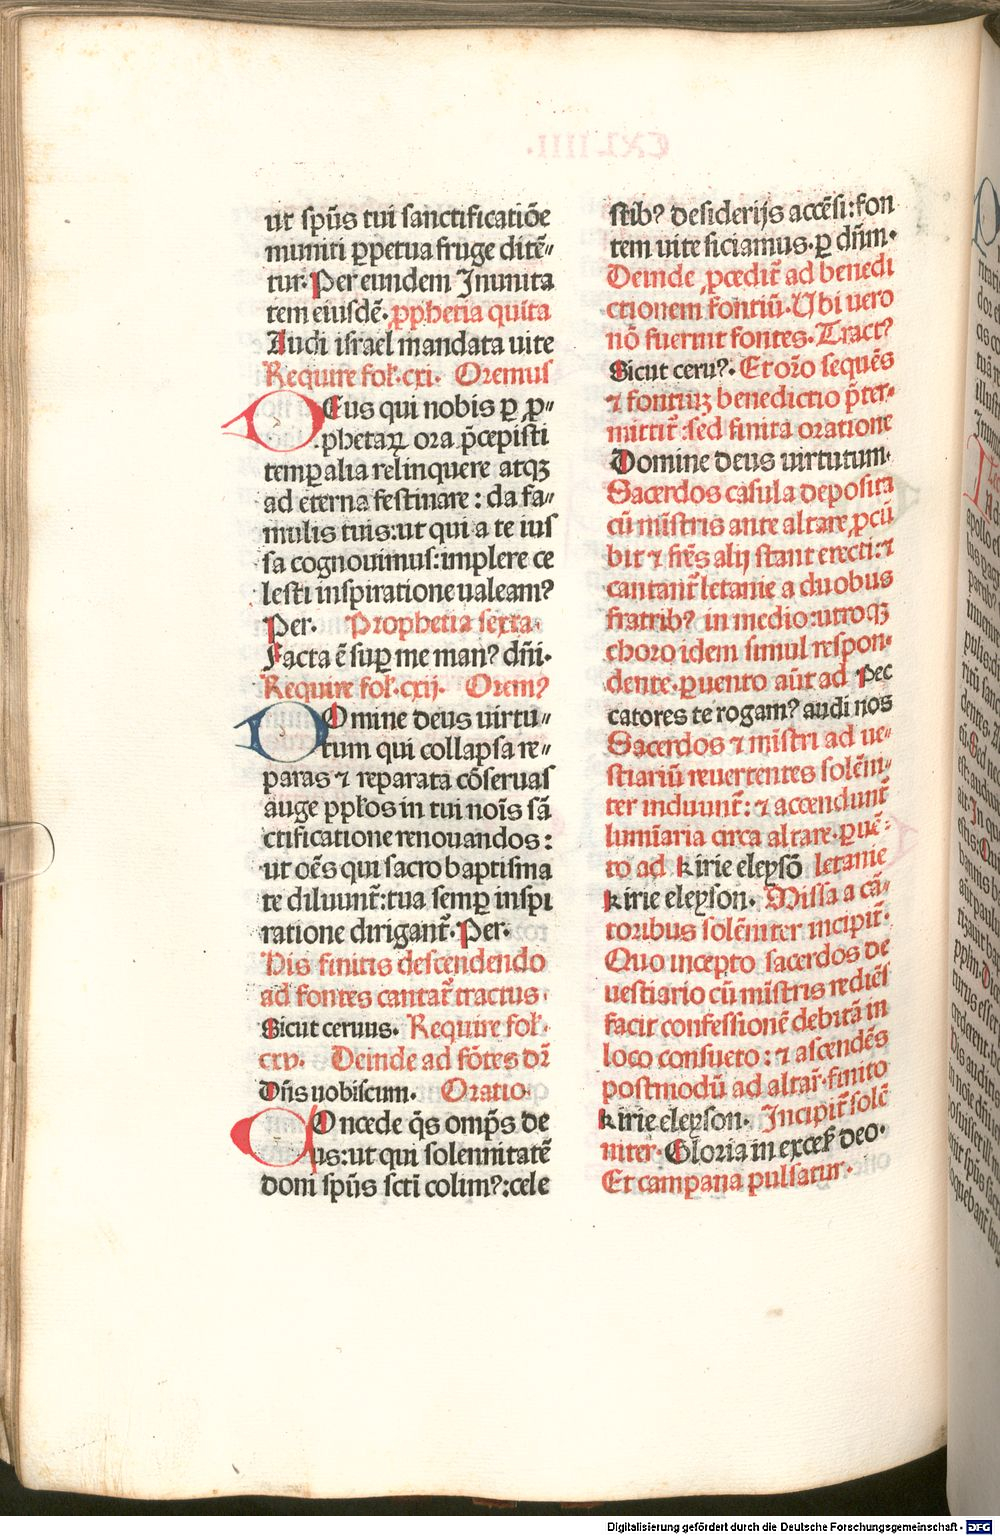 ut spūs tui sanctificatiōe
muniti ꝑpetua fruge ditē⸗
tur. Per eundem In unita
tem eiusdē. ꝓphetia quīta
Audi israel mandata uite
Require fol. cxi. Oremus
DEus qui nobis ꝑ ꝓ⸗
phetaꝝ ora p̄cepisti
temꝑalia relinquere atqꝫ
ad eterna festinare : da fa⸗
mulis tuis: ut qui a te ius
sa cognouimus: implere ce
lesti inspiratione ualeam?
Per. Prophetia sexta.
Facta ē suꝑ me man? dñi.
Require fol. cxij. Orem?
DOmine deus uirtu⸗
tum qui collapsa re⸗
paras ⁊ reparata cōseruas
auge ppłos in tui noīs sā
ctificatione renouandos :
ut oēs qui sacro baptisma
te diluunt̄: tua semꝑ inspi
ratione dirigant̄. Per.
His finitis descendendo
ad fontes cantat̄ tractus.
Sicut ceruus. Require fol.
cxv. Deinde ad fōtes dr̄
Dñs uobiscum. Oratio.
COncede q̄s omp̄s de
us: ut qui solennitatē
doni spūs scti colim?: cele
stib? desiderijs accēsi: fon
tem uite siciamus. ꝑ dñm.
Deinde ꝓcedit̄ ad benedi
ctionem fontiū. Ubi uero
nō fuerint fontes. Tract?
Sicut ceru?. Et orō sequēs
⁊ fontiuꝫ benedictio p̄ter⸗
mittit̄: sed finita oratione
Domine deus uirtutum.
Sacerdos casula deposita
cū mīstris ante altare ꝓcū
bit ⁊ frēs alij stant erecti: ⁊
cantant̄ letanie a duobus
fratrib? in medio: utroqꝫ
choro idem simul respon⸗
dente. ꝑuento aūt ad Pec
catores te rogam? audi nos
Sacerdos ⁊ mīstri ad ue⸗
stiariū reuertentes solēni⸗
ter induunt̄: ⁊ accendunt̄
lumīaria circa altare. ꝑuē⸗
to ad kirie eleysō letanie
kirie eleyson. Missa a cā⸗
toribus solēniter incipit̄.
Quo incepto sacerdos de
uestiario cū mīstris rediēs
facit confessionē debitā in
loco consueto : ⁊ ascendēs
postmodū ad altar̄. finito
kirie eleyson. Incipit̄ solē
niter. Gloria in excels̄ deo.
Et campana pulsatur.
CXLIIII.
Digitalisierung gefördert durch die Deutsche Forschungsgemeinschaft - DFG